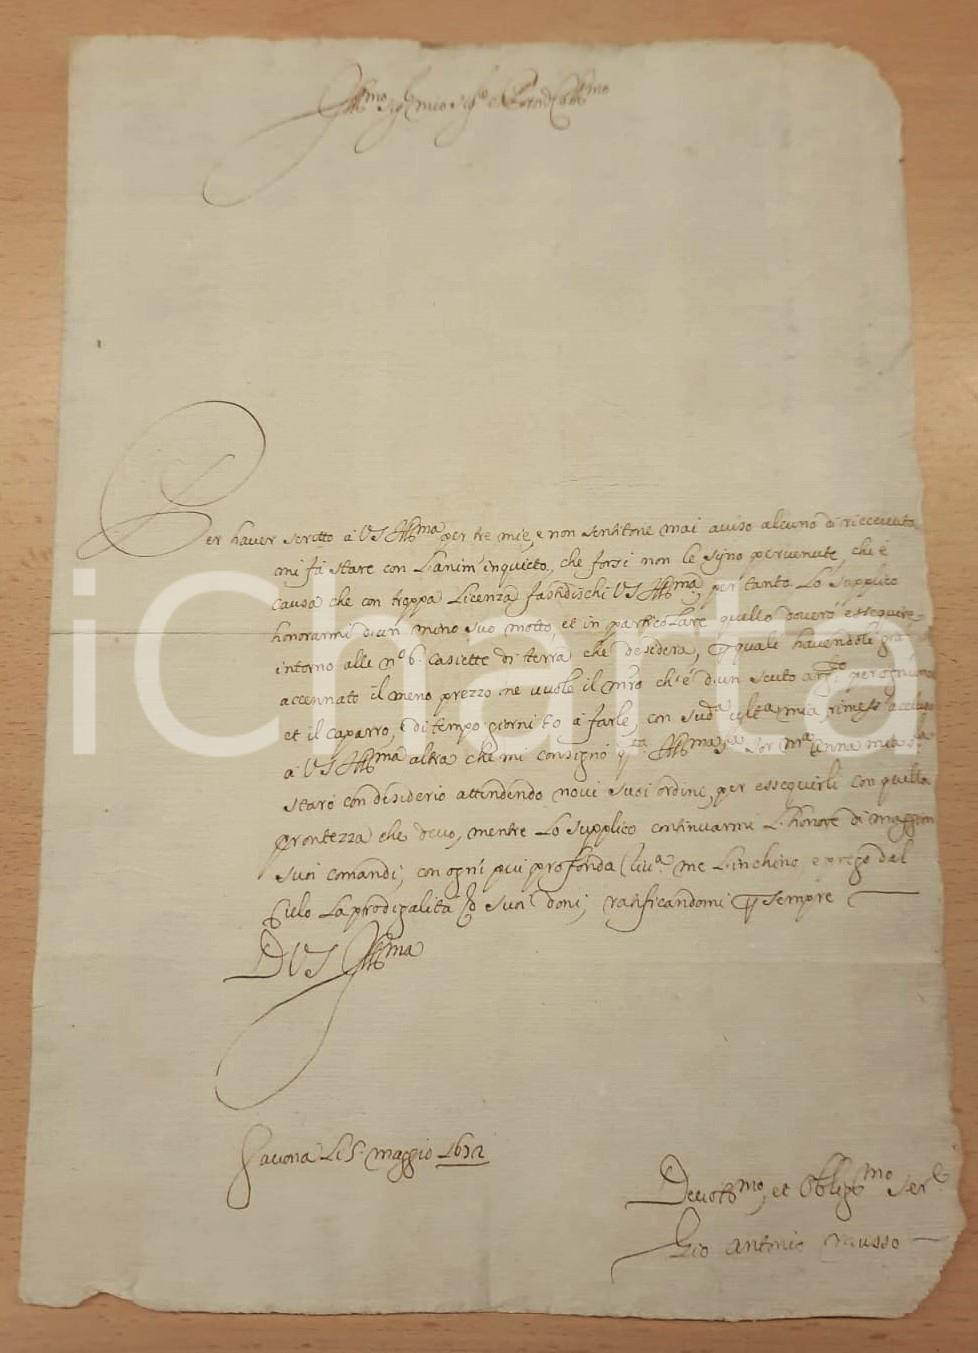 Ill.mo Sig.r mio Sig.r e Pron Coll.mo
Per haver scritto à VS Ill.ma per tre mie, e non sentitone mai aviso alcuno di riceevuta
mi fà stare con L'anim'inquieto, che forsi non le sijno pervenute, che è
causa che con troppa Licenza fastidischi VS Ill.ma, per tanto Lo supplico
honorarmi d'un mino suo motto, et in particolare quello doverò essequire
intorno alle n.o 6. Casiette di terra che desidera, quale havendole già
accennato il meno prezzo ne vuole il m.ro ch'è d'un scuto arg.to per ogn'una
et il caparro, e di tempo giorni to à farle, con sud.a mia rimessi
à VS Ill.ma altra che mi consignò Ill.ma Sor M.a Anna
starò con desiderio attindendo novi suoi ordini, per essequirli con quella
prontezza che devo, mentre Lo supplico continuarmi L'honore di maggiori
suoi comandi; con ogni più profonda me L'inchino, e prego dal
Cielo La prodigalità suoi doni; ratificandomi sempre
D VS Ill.ma
Savona Li 5 maggio 1672
Devot.mo, et Oblig.mo Ser.e
Gio Antonio Musso
iCharta